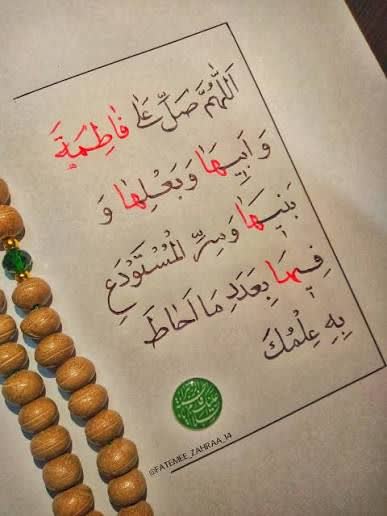 اَللّٰهُمَّ صَلِّ عَلیٰ فاطِمَةَ
وَ اَبِیها وَ بَعْلِها وَ
بَنِیها وَ سِرِّ الْمُسْتَوْدَعِ
فِیها بِعَدَدِ مَا اَحٰاطَ
بِهِ عِلْمُکَ
@FATEMEE_ZAHRAA_14